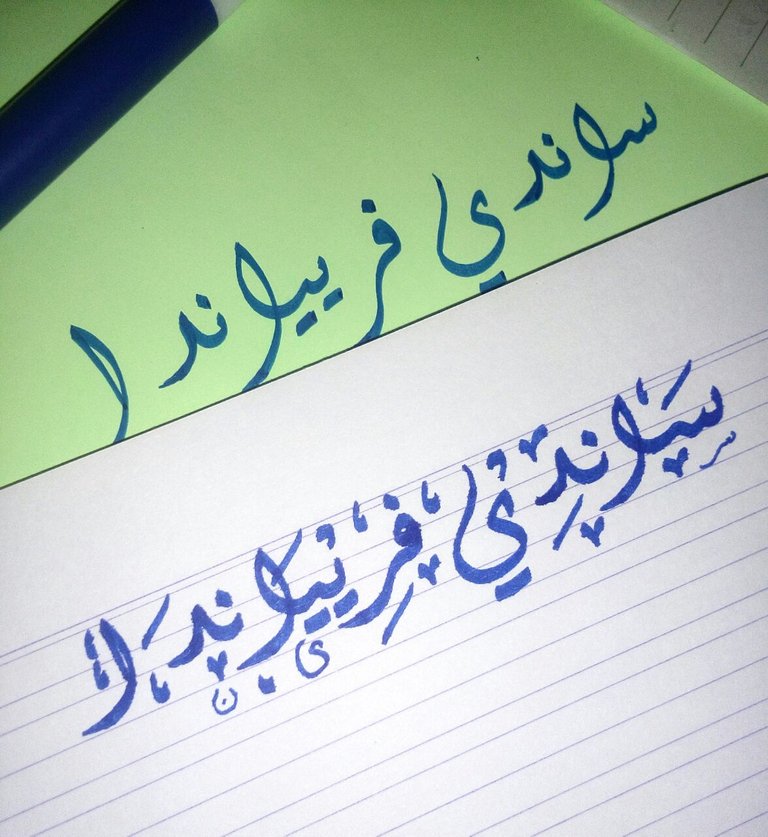 ساندي فريياندا
سَانْدِيْ فِرْيْيَانْدَا